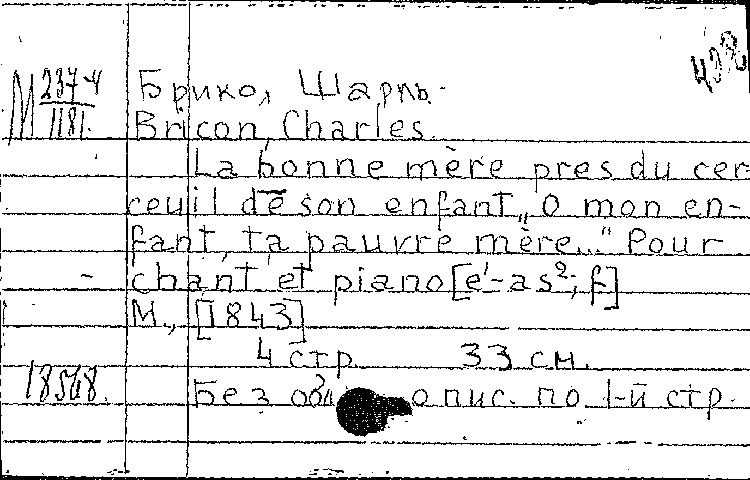 438
М 237-4
1181.
Брико, Шарль.
Bricon, Charles.
La bonne mère pres du cer-
ceuil de son enfant „O mon en-
fant, ta pauvre mère..." Pour
chant et piano [e'-as²; f]
М., [1843]
4 стр. 33 см.
18568.
Без опис. по 1-й стр.